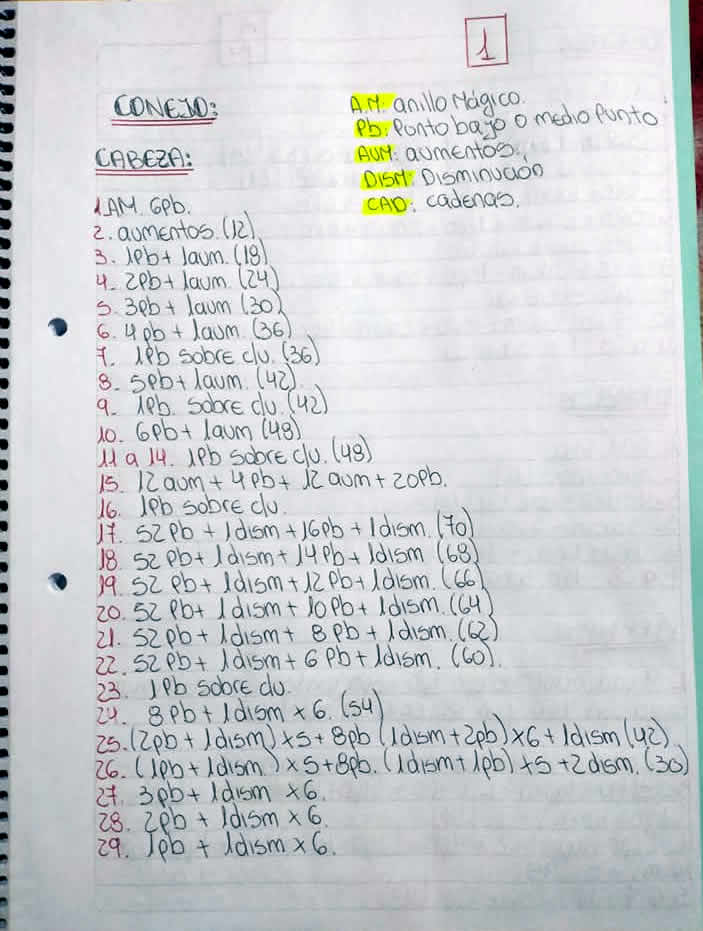 1
CONEJO:
A.M: anillo Mágico.
Pb: Punto bajo o medio punto
AUM: aumentos.
DISM: Disminución
CAD: cadenas.
CABEZA:
1. AM. 6Pb.
2. aumentos. (12)
3. 1Pb + 1aum. (18)
4. 2Pb + 1aum. (24)
5. 3pb + 1aum (30)
6. 4 pb + 1aum. (36)
7. 1Pb sobre c/u. (36)
8. 5Pb + 1aum. (42).
9. 1Pb. sobre c/u. (42)
10. 6Pb + 1aum (48)
11 a 14. 1Pb sobre c/u. (48)
15. 12 aum + 4 Pb + 12 aum + 20Pb.
16. 1Pb sobre c/u.
17. 52 Pb + 1dism + 16Pb + 1dism. (70)
18. 52 Pb + 1dism + 14Pb + 1dism (68)
19. 52 Pb + 1dism + 12Pb + 1dism. (66)
20. 52 Pb + 1dism + 10Pb + 1dism. (64)
21. 52Pb + 1dism + 8Pb + 1dism. (62)
22. 52Pb + 1dism + 6Pb + 1dism. (60).
23. 1Pb sobre c/u.
24. 8Pb + 1dism x 6. (54)
25. (2pb + 1dism) x 5 + 8pb (1dism + 2pb) x 6 + 1dism (42)
26. (1Pb + 1dism.) x 5 + 8pb. (1dism + 1pb) x 5 + 2 dism. (30)
27. 3pb + 1dism x 6.
28. 2pb + 1dism x 6.
29. 1pb + 1dism x 6.